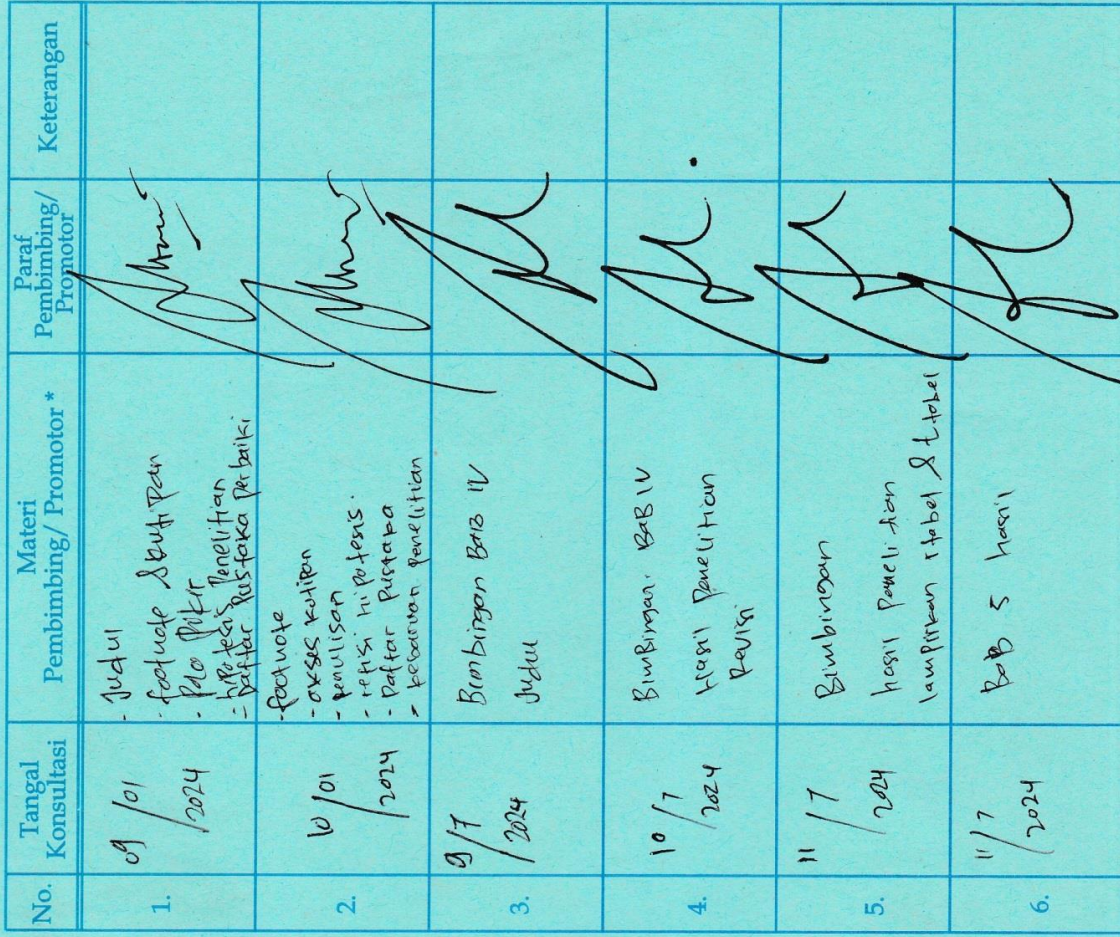 No.
Tangal
Konsultasi
Materi
Pembimbing/ Promotor *
Paraf
Pembimbing/
Promotor
Keterangan
1.
09/01
/2024
- Judul
- footnote & kutipan
- Pola Pikir
- hipotesis Penelitian
- Daftar Pustaka Perbaiki
2.
10/01
/2024
- footnote
- akses kutipan
- penulisan
- revisi hipotesis.
- Daftar Pustaka
- kebaruan penelitian
3.
9/7
/2024
Bimbingan BAB IV
Judul
4.
10/7
2024
Bimbingan BAB IV
Hasil Penelitian
Revisi
5.
11/7
2024
Bimbingan
hasil Penelitian
lampirkan tabel &
6.
11/7
2024
BAB 5 hasil